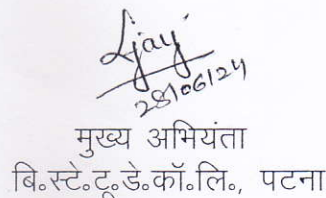 Ajay
28/06/24
मुख्य अभियंता
बि॰स्टे॰टू॰डे॰कॉ॰लि॰, पटना